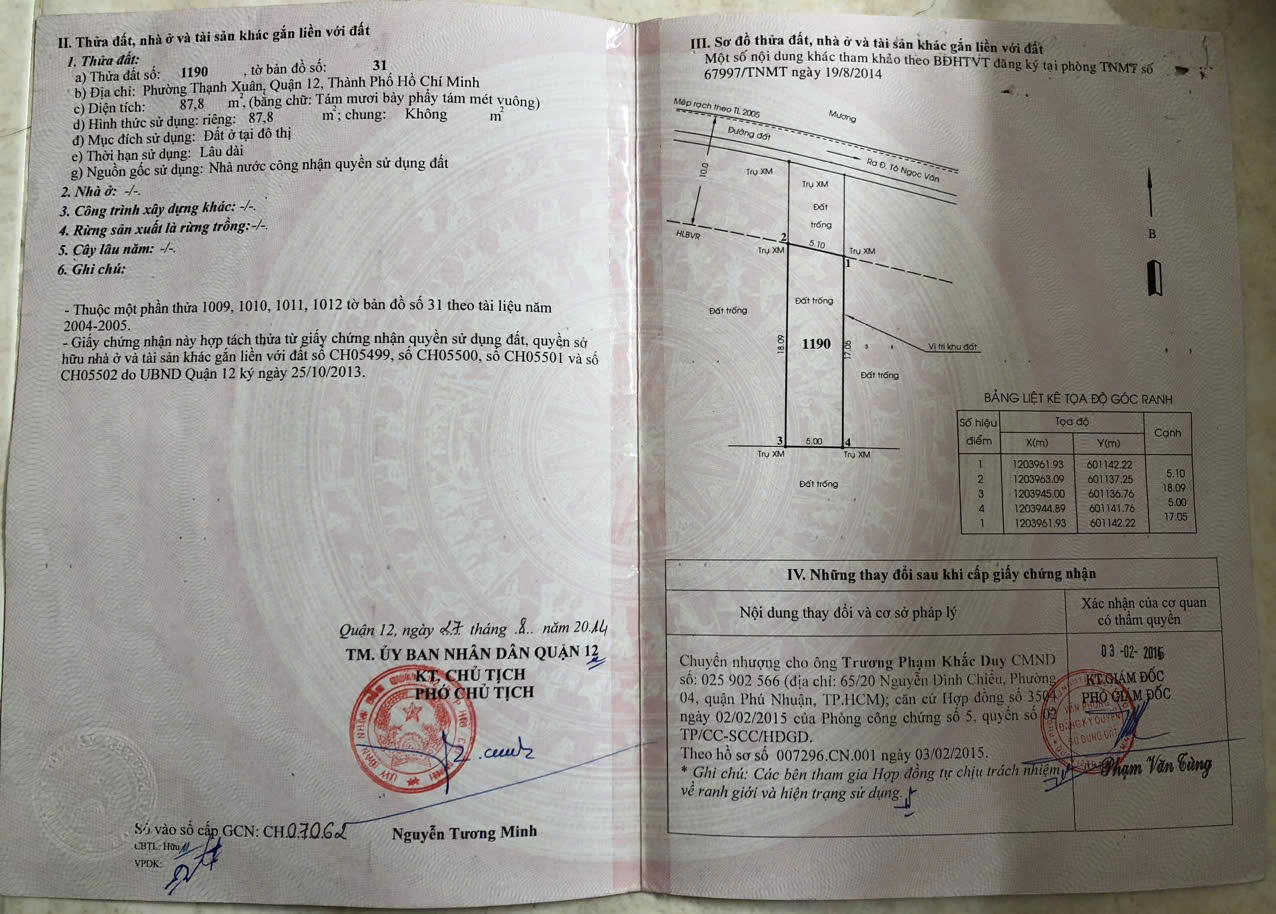 II. Thửa đất, nhà ở và tài sản khác gắn liền với đất
1. Thửa đất:
a) Thửa đất số: 1190 , tờ bản đồ số: 31
b) Địa chỉ: Phường Thạnh Xuân, Quận 12, Thành Phố Hồ Chí Minh
c) Diện tích: 87,8 m², (bằng chữ: Tám mươi bảy phẩy tám mét vuông)
d) Hình thức sử dụng: riêng: 87,8 m²; chung: Không m²
đ) Mục đích sử dụng: Đất ở tại đô thị
e) Thời hạn sử dụng: Lâu dài
g) Nguồn gốc sử dụng: Nhà nước công nhận quyền sử dụng đất
2. Nhà ở: -/-.
3. Công trình xây dựng khác: -/-.
4. Rừng sản xuất là rừng trồng:-/-.
5. Cây lâu năm: -/-.
6. Ghi chú:
- Thuộc một phần thửa 1009, 1010, 1011, 1012 tờ bản đồ số 31 theo tài liệu năm
2004-2005.
- Giấy chứng nhận này hợp tách thửa từ giấy chứng nhận quyền sử dụng đất, quyền sở
hữu nhà ở và tài sản khác gắn liền với đất số CH05499, số CH05500, số CH05501 và số
CH05502 do UBND Quận 12 ký ngày 25/10/2013.
Quận 12, ngày 27 tháng .8.. năm 2014
TM. ỦY BAN NHÂN DÂN QUẬN 12
KT. CHỦ TỊCH
PHÓ CHỦ TỊCH
Số vào sổ cấp GCN: CH.07062
Nguyễn Tương Minh
CBTL: Hữu
VPĐK:
III. Sơ đồ thửa đất, nhà ở và tài sản khác gắn liền với đất
Một số nội dung khác tham khảo theo BĐHTVT đăng ký tại phòng TNMT số
67997/TNMT ngày 19/8/2014
Mép rạch theo TL 2005
Mương
Đường đất
Ra Đ. Tô Ngọc Vân
10.0
Trụ XM
Trụ XM
Đất
trống
HLBVR
2
5.10
Trụ XM
Trụ XM
1
B
Đất trống
Đất trống
18.09
1190
17.05
Vị trí khu đất
Đất trống
3
5.00
4
Trụ XM
Trụ XM
Đất trống
BẢNG LIỆT KÊ TỌA ĐỘ GÓC RANH
Số hiệu điểm Tọa độ Cạnh
X(m) Y(m)
1 1203961.93 601142.22
5.10
2 1203963.09 601137.25
18.09
3 1203945.00 601136.76
5.00
4 1203944.89 601141.76
17.05
1 1203961.93 601142.22
IV. Những thay đổi sau khi cấp giấy chứng nhận
Nội dung thay đổi và cơ sở pháp lý
Xác nhận của cơ quan
có thẩm quyền
Chuyển nhượng cho ông Trương Phạm Khắc Duy CMND
số: 025 902 566 (địa chỉ: 65/20 Nguyễn Đình Chiểu, Phường
04, quận Phú Nhuận, TP.HCM); căn cứ Hợp đồng số 3504
ngày 02/02/2015 của Phòng công chứng số 5, quyển số 05
TP/CC-SCC/HĐGD.
Theo hồ sơ số 007296.CN.001 ngày 03/02/2015.
* Ghi chú: Các bên tham gia Hợp đồng tự chịu trách nhiệm
về ranh giới và hiện trạng sử dụng.
03-02-2015
KT.GIÁM ĐỐC
PHÓ GIÁM ĐỐC
VĂN PHÒNG
ĐĂNG KÝ QUYỀN
SỬ DỤNG ĐẤT
Phạm Văn Tùng